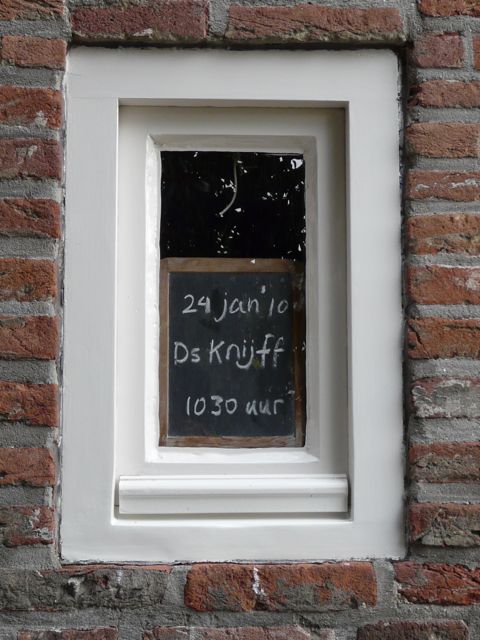 24 jan '10
Ds Knijff
1030 uur